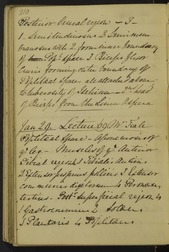 210
Posterior Crural region - I -
1. Semitendinosus 2. Semimem
branosus with 2 form inner boundary
of space 3 Biceps flexor
Cruris forming outer boundary of
Popliteal Space all attached above
to tuberosity of Ischium - 2nd head
of Biceps from the Linea Aspera
Jan 29. Lecture by Mr
Popliteal Space - Aponeurosis of
Leg - Muscles of Anterior
Tibial region 1 Tibialis Anticus.
2 Extensor proprius pollicis 3 Extensor
communis digitorum 4 Peroneus
tertius. Post Superficial region 4
1 Gastrocnemius 2 Soleus
3 Plantaris 4 Popliteus